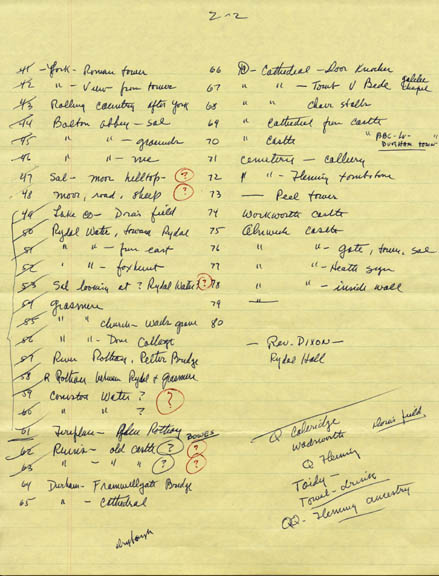 2-2
41 - York - Roman tower
42 " - View from tower
43 Rolling country after York
44 Bolton Abbey - sal
45 " " - grounds
46 " " - me
47 Sal - moor hilltop - ?
48 moor, road, sheep ?
49 Lake CO - Dora's field
50 Rydal Water, toward Rydal
51 " " - from east
52 " " - foxhunt
53 Sal looking at ? Rydal Water? ?
54 Grasmere
55 " " church - Wads grave
56 " " - Dove Cottage
57 River Rothay, Pelter Bridge
58 R Rothay between Rydal & Grasmere
59 Coniston Water ? ?
60 " " ?
61 Fireplace - Rothay
62 Ruins - old castle ? BOWES ?
63 " - " " ? ?
64 Durham - Framwellgate Bridge
65 " - Cathedral
66 D - Cathedral - Door Knocker
67 " " - Tomb V Bede galilee chapel
68 " " choir stalls
69 " Cathedral from castle
70 " Castle "ABC-LV-DURHAM town"
71 Cemetery - 
72 " " - Fleming tombstone
73 - Peel tower
74 Workworth castle
75 Alnwick castle
76 " " - gate, tower, sal
77 " " - Heath sign
78 " " - inside wall
79 -
80
- Rev. DIXON -
Rydal Hall
Q Coleridge
Wadsworth
Dora's field
Q Fleming
Toidy -
Towel - drink
QQ - Fleming ancestry